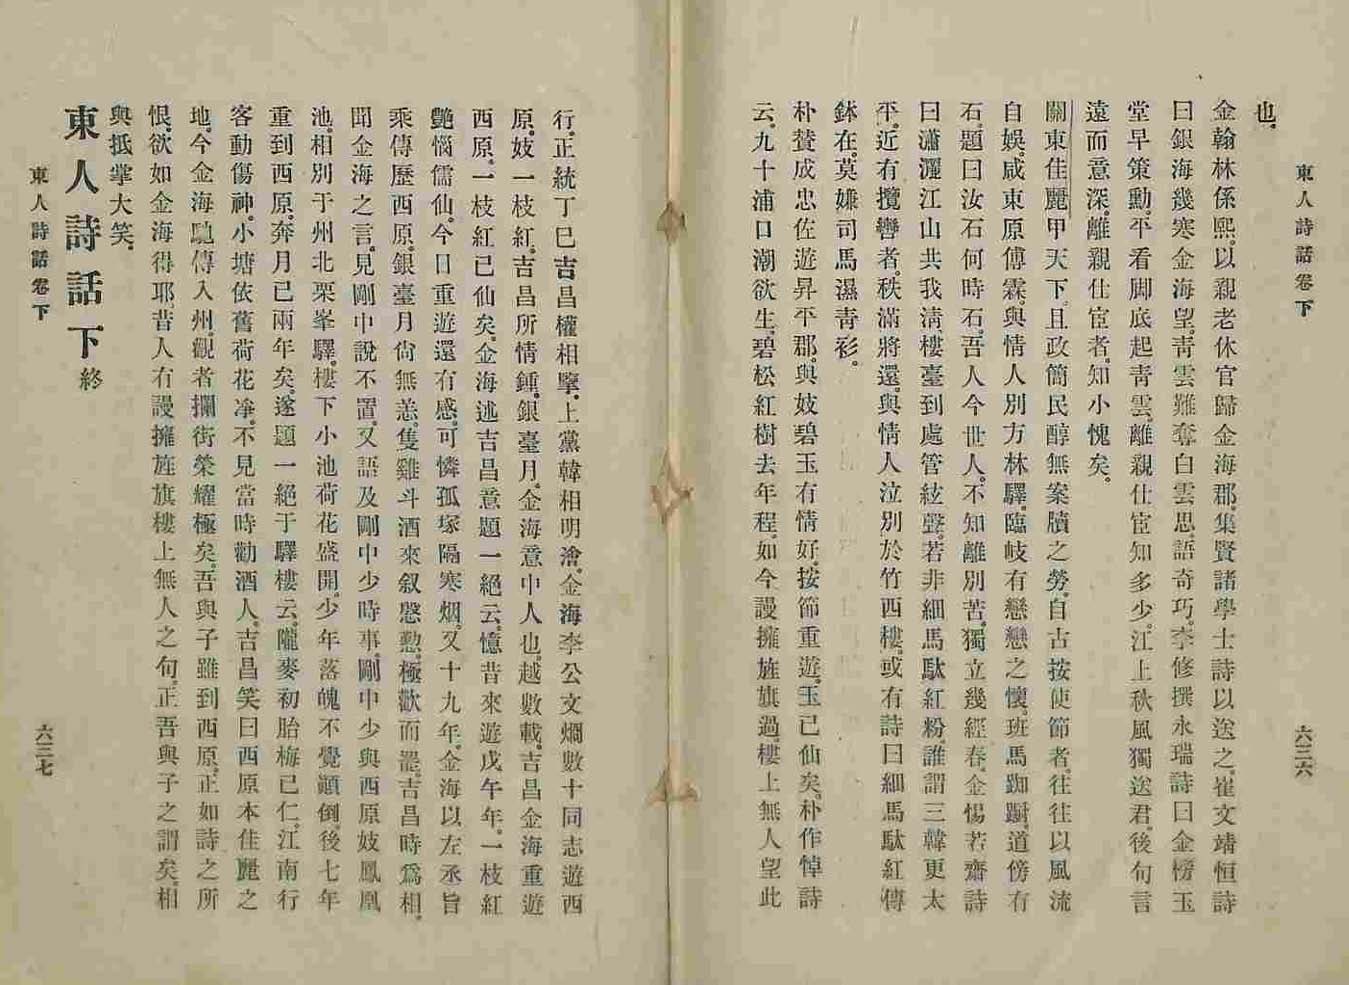 東人詩話卷下
六三六
也。
金翰林係熙。以親老休官歸金海郡。集賢諸學士詩以送之。崔文靖恒詩
曰銀海幾寒金海望。靑雲難奪白雲思。語奇巧。李修撰永瑞詩曰金榜玉
堂早策勳。平看脚底起靑雲。離親仕宦知多少。江上秋風獨送君。後句言
遠而意深。離親仕宦者。知小愧矣。
關東佳麗甲天下。且政簡民醇無案牘之勞。自古按使節者。往往以風流
自娛。咸東原傅霖。與情人別方林驛。臨岐有戀戀之懷。班馬踟躕。道傍有
石。題曰汝石何時石。吾人今世人。不知離別苦。獨立幾經春。金惕若齋詩
曰瀟灑江山共我淸。樓臺到處管絃聲。若非細馬馱紅粉誰謂三韓更太
平。近有攬轡者。秩滿將還。與情人泣別於竹西樓。或有詩曰細馬馱紅傳
鉢在。莫嫌司馬濕靑衫。
朴贊成忠佐遊昇平郡。與妓碧玉有情好。按節重遊。玉已仙矣。朴作悼詩
云。九十浦口潮欲生。碧松紅樹去年程。如今謾擁旌旗過。樓上無人望此
行。正統丁巳吉昌權相擥。上黨韓相明澮。金海李公文烱數十同志遊西
原。妓一枝紅。吉昌所情鍾。銀臺月。金海意中人也。越數載。吉昌金海重遊
西原。一枝紅已仙矣。金海述吉昌意題一絕云。憶昔來遊戊午年。一枝紅
艷惱儒仙。今日重遊還有感。可憐孤塚隔寒烟。又十九年。金海以左丞旨
乘傳歷西原。銀臺月尙無恙。隻雞斗酒來叙慇懃。極歡而罷。吉昌時爲相。
聞金海之言。見剛中說不置。又語及剛中少時事。剛中少與西原妓鳳凰
池。相別于州北栗峯驛。樓下小池荷花盛開。少年落魄不覺顚倒。後七年
重到西原。奔月已兩年矣。遂題一絕于驛樓云。隴麥初胎梅已仁。江南行
客動傷神。小塘依舊荷花淨。不見當時勸酒人。吉昌笑曰西原本佳麗之
地。今金海馳傳入州。觀者攔街榮耀極矣。吾與子雖到西原。正如詩之所
恨。欲如金海得耶。昔人有謾擁旌旗樓上無人之句。正吾與子之謂矣。相
與抵掌大笑。
東人詩話下終
東人詩話卷下
六三七